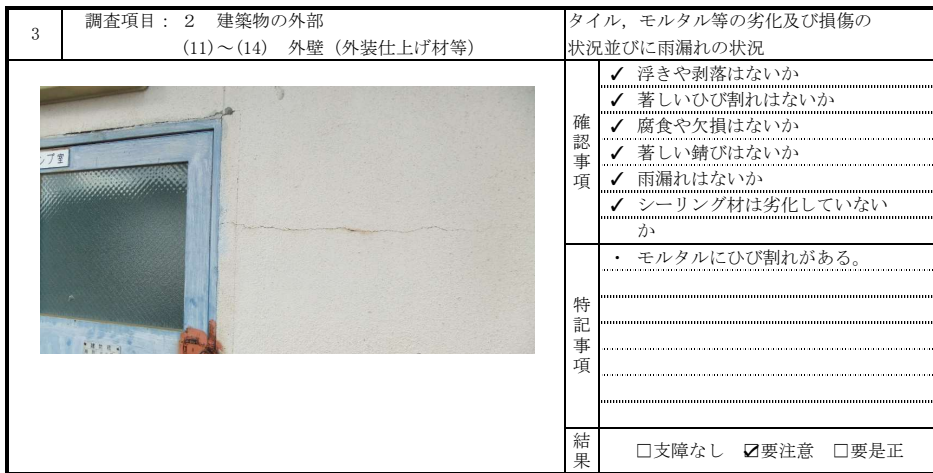 3
調査項目： 2 建築物の外部
(11)～(14) 外壁（外装仕上げ材等）
タイル，モルタル等の劣化及び損傷の
状況並びに雨漏れの状況
プ室
確認事項
✓ 浮きや剥落はないか
✓ 著しいひび割れはないか
✓ 腐食や欠損はないか
✓ 著しい錆びはないか
✓ 雨漏れはないか
✓ シーリング材は劣化していない
か
特記事項
・ モルタルにひび割れがある。
結果
□支障なし ☑要注意 □要是正